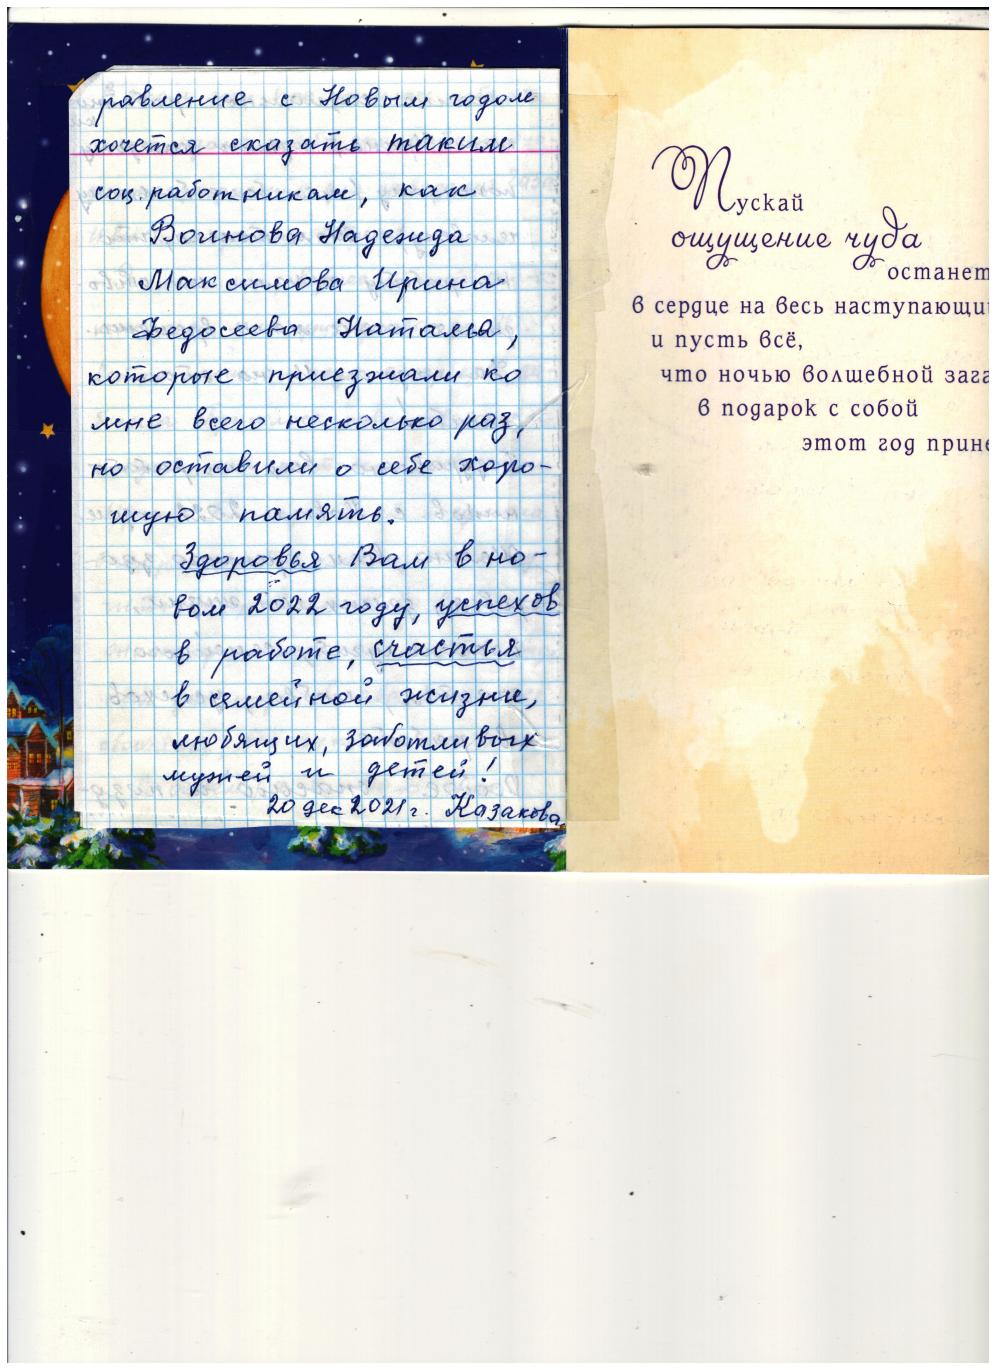 равление с Новым годом
хочется сказать таким
соц. работникам, как
Воинова Надежда
Максимова Ирина
Федосеева Наталья,
которые приезжали ко
мне всего несколько раз,
но оставили о себе хоро-
шую память.
Здоровья Вам в но-
вом 2022 году, успехов
в работе, счастья
в семейной жизни,
любящих, заботливых
мужей и детей!
20 дек 2021 г. Казакова
Пускай
ощущение чуда
останет
в сердце на весь наступающий
и пусть всё,
что ночью волшебной зага
в подарок с собой
этот год прине